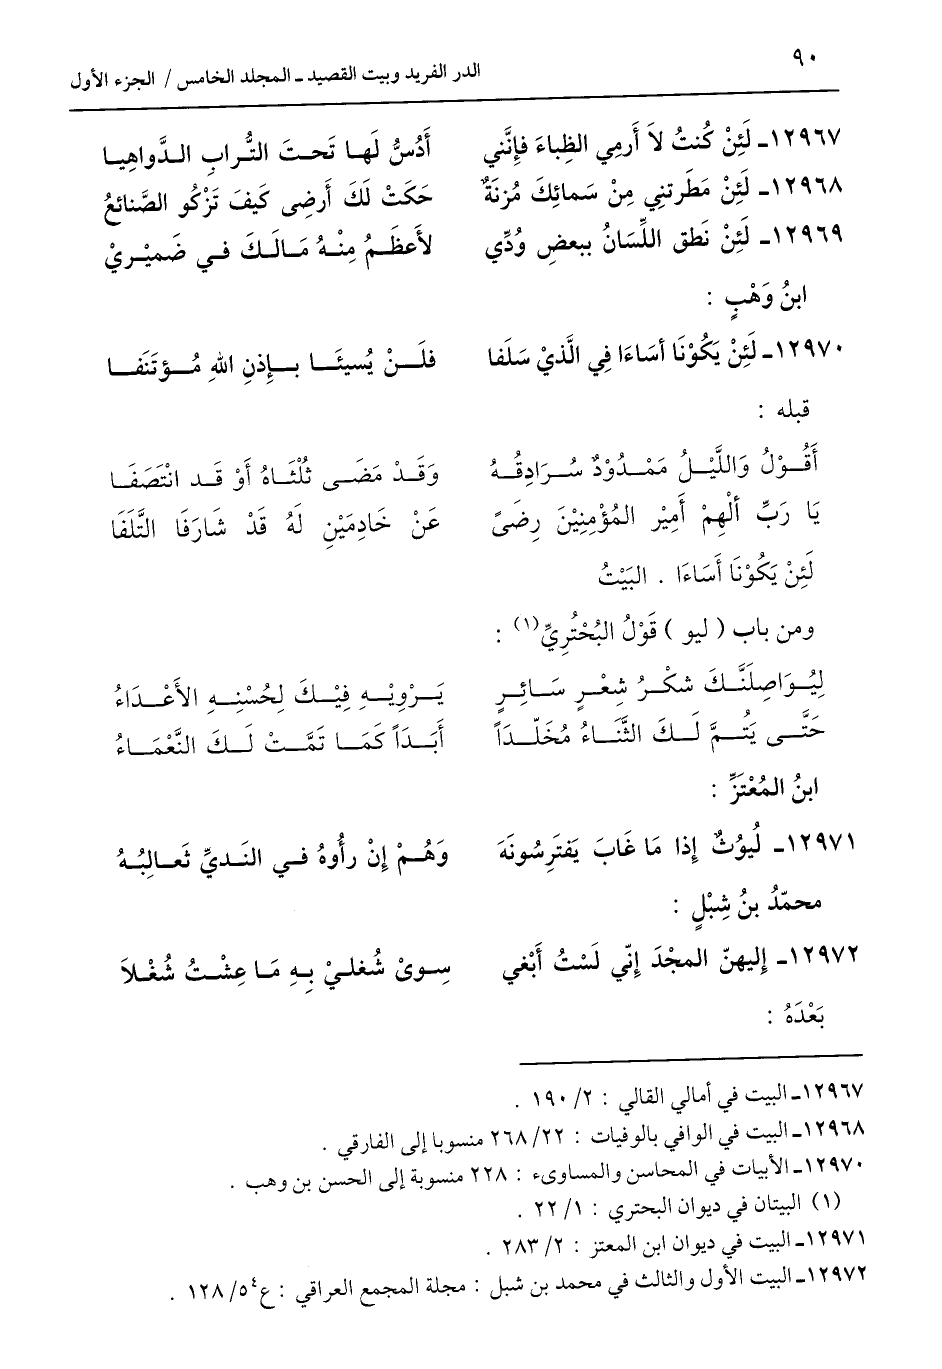 ٩٠
الدر الفريد وبيت القصيد ـ المجلد الخامس / الجزء الأول
١٢٩٦٧ـ لَئِنْ كُنتُ لاَ أَرمِي الظِباءَ فَإِنَّني أَدُسُّ لَهـا تَحـتَ التُّـرابِ الـدَّواهِيـا
١٢٩٦٨ـ لَئِنْ مَطَرتنِي مِنْ سَمائِكَ مُزنَةٌ حَكَتْ لَكَ أَرضِى كَيفَ تَزْكُو الصَّنائعُ
١٢٩٦٩ـ لَئِنْ نَطق اللِّسَانُ ببعضِ وُدِّي لأَعظَـمُ مِنْـهُ مَـالَـكَ فـي ضَميْـرِيْ
ابنُ وَهْبٍ :
١٢٩٧٠ـ لَئِنْ يَكُوْنَا أسَاءَا فِي الَّذيْ سَلَفا فلَــنْ يُسيئَــا بــإِذنِ اللهِ مُــؤتَنَفــا
قبله :
أَقُــوْلُ وَاللَّيْــلُ مَمْــدُوْدٌ سُــرَادِقُــهُ وَقَـدْ مَضَــى ثُلْثَـاهُ أَوْ قَـد انْتَصَفَــا
يَا رَبِّ ألْهِمْ أَمِيْرِ المُؤْمِنِيْنَ رِضىً عَنْ خَادِمَيْنِ لَهُ قَدْ شَارَفَا التَّلَفَا
لَئِنْ يَكُوْنَا أَسَاءَا . البَيْتُ
ومن باب ( ليو ) قَوْلُ البُحْتُرِيِّ(١) :
لِيُــوَاصِلَنَّــكَ شكْـرُ شِعْـرٍ سَـائِــرٍ يَــرْوِيْــهِ فِيْــكَ لِحُسْنِــهِ الأَعْــدَاءُ
حَتَّــى يُتــمَّ لَــكَ الثَّنَــاءُ مُخَلّــداً أَبَــدَاً كَمَــا تَمَّــتْ لَــكَ النَّعْمَــاءُ
ابنُ المُعْتَزِّ :
١٢٩٧١ـ لُيوْثٌ إِذا مَا غَابَ يَفتَرِسُونَهَ وَهُـمْ إِنْ رأُوهُ فـي النَـديِّ ثَعـالِبُـهُ
محمّدُ بنُ شِبْلٍ :
١٢٩٧٢ـ إِليهنّ المجْدَ إِنّي لَسْتُ أَبْغي سِـوىْ شُغلـيْ بِـهِ مَـا عِشْـتُ شُغْـلاَ
بَعْدَهُ :
١٢٩٦٧ـ البيت في أمالي القالي : ٢/ ١٩٠ .
١٢٩٦٨ـ البيت في الوافي بالوفيات : ٢٢/ ٢٦٨ منسوبا إلى الفارقي .
١٢٩٧٠ـ الأبيات في المحاسن والمساوىء : ٢٢٨ منسوبة إلى الحسن بن وهب .
(١) البيتان في ديوان البحتري : ١/ ٢٢ .
١٢٩٧١ـ البيت في ديوان ابن المعتز : ٢/ ٢٨٣ .
١٢٩٧٢ـ البيت الأول والثالث في محمد بن شبل : مجلة المجمع العراقي : ع٤/ ٥ / ١٢٨ .